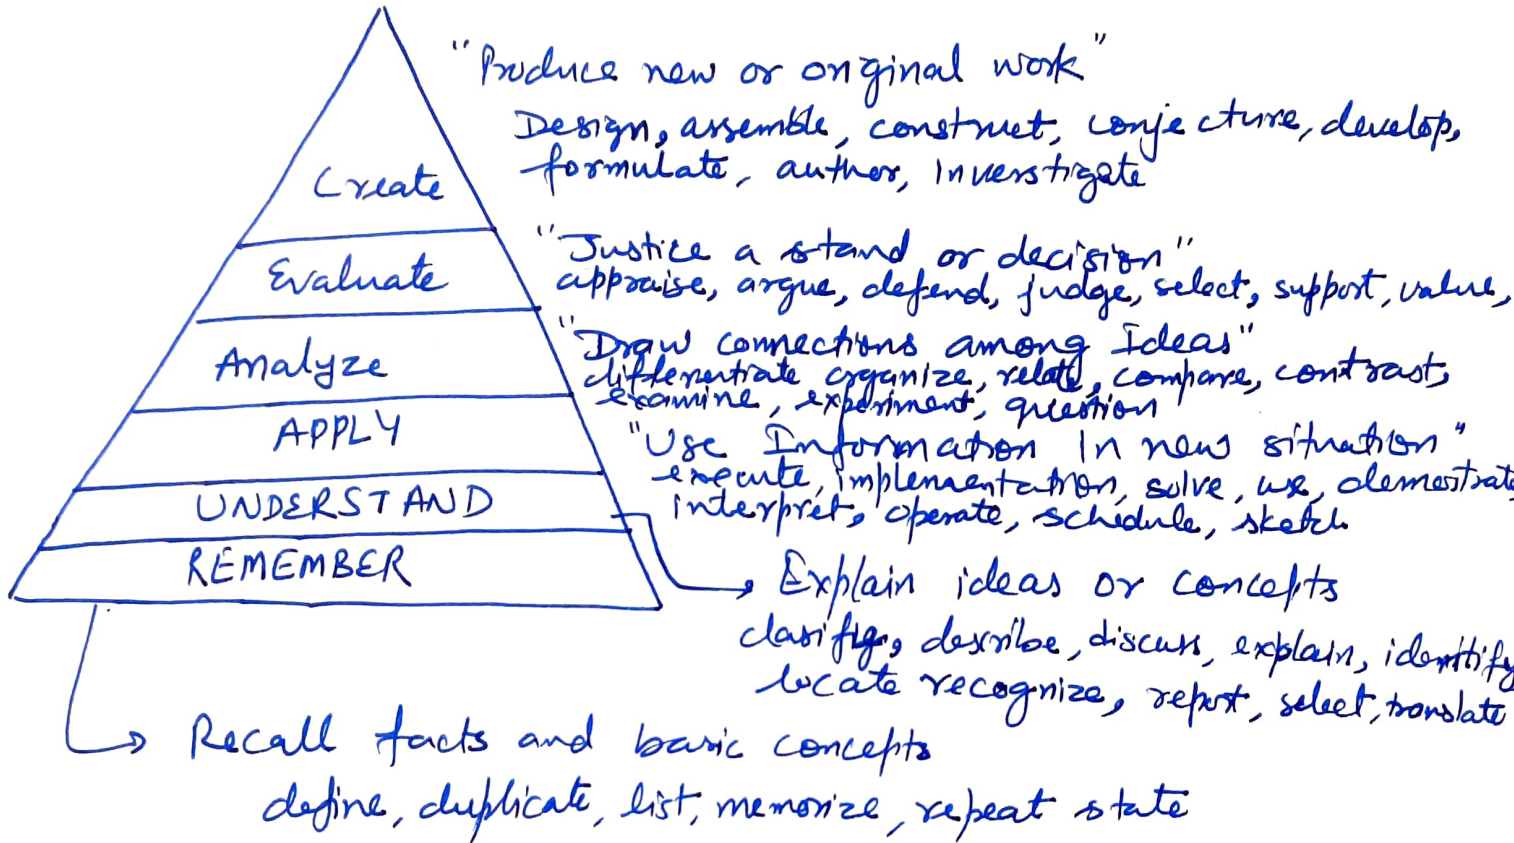 "Produce new or original work"
Design, assemble, construct, conjecture, develop,
formulate, author, inverstigate
Create
"Justice a stand or decision"
appraise, argue, defend, judge, select, support, value,
Evaluate
"Draw connections among Ideas"
differentiate organize, relate, compare, contrast,
examine, experiment, question
Analyze
"Use Information In new situation"
execute, implementation, solve, use, demostrate
interpret, operate, schedule, sketch
APPLY
UNDERSTAND
Explain ideas or concepts
clasifig, describe, discuss, explain, identify
locate recognize, report, select, translate
REMEMBER
Recall facts and basic concepts
define, duplicate, list, memorize, repeat state